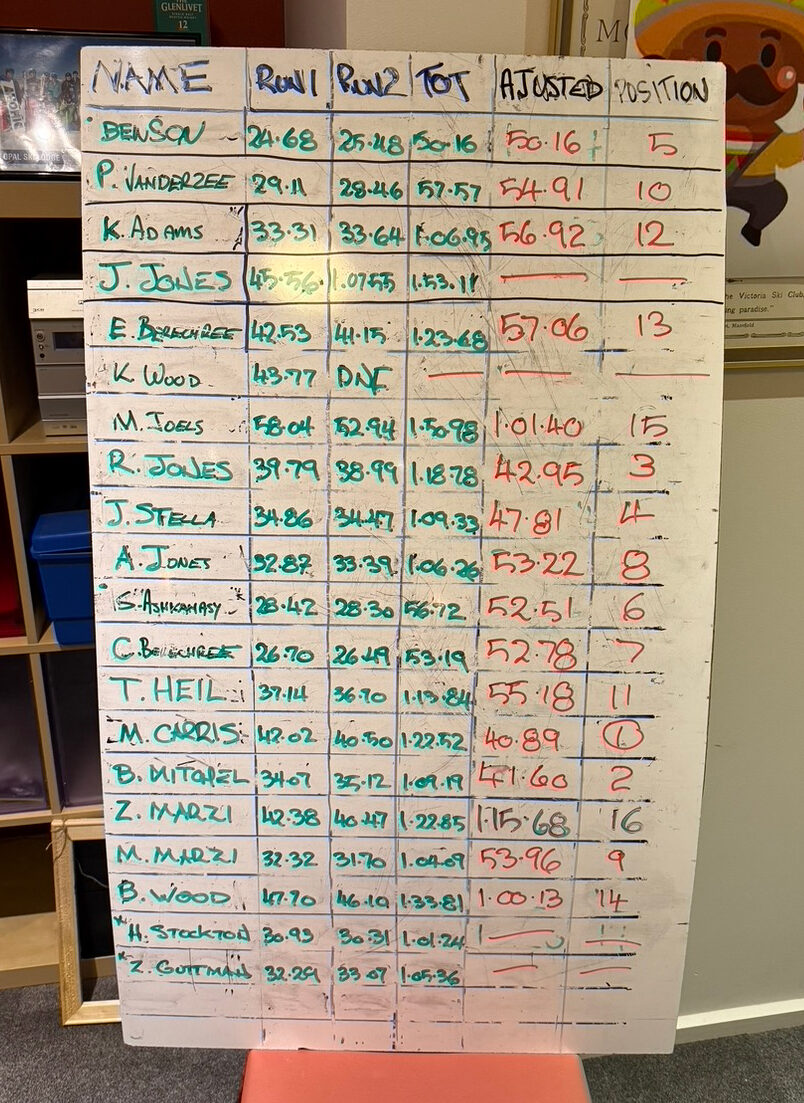 GLENLIVET
12
NAME RUN1 RUN2 TOT AJUSTED POSITION
BENSON 24.68 25.48 50.16 50.16 5
P. VANDERZEE 29.11 28.46 57.57 54.91 10
K. ADAMS 33.31 33.64 1.06.95 56.92 12
J. JONES 45.56 1.07.55 1.53.11 — —
E. BERECHREE 42.53 41.15 1.23.68 57.06 13
K. WOOD 43.77 DNF — — —
M. JOELS 58.04 52.94 1.50.98 1.01.40 15
R. JONES 39.79 38.99 1.18.78 42.95 3
J. STELLA 34.86 34.47 1.09.33 47.81 4
A. JONES 32.87 33.39 1.06.26 53.22 8
S. ASHKANASY 28.42 28.30 56.72 52.51 6
C. BERECHREE 26.70 26.49 53.19 52.78 7
T. HEIL 37.14 36.70 1.13.84 55.18 11
M. CARRIS 42.02 40.50 1.22.52 40.89 1
B. MITCHEL 34.07 35.12 1.09.19 41.60 2
Z. MARZI 42.38 40.47 1.22.85 1.15.68 16
M. MARZI 32.32 31.70 1.04.09 53.96 9
B. WOOD 47.70 46.10 1.33.81 1.00.13 14
*H. STOCKTON 30.93 30.31 1.01.24 — —
*Z. GUTTMAN 32.29 33.07 1.05.36 — —
the Victoria Ski Club,
ing paradise."
Mansfield